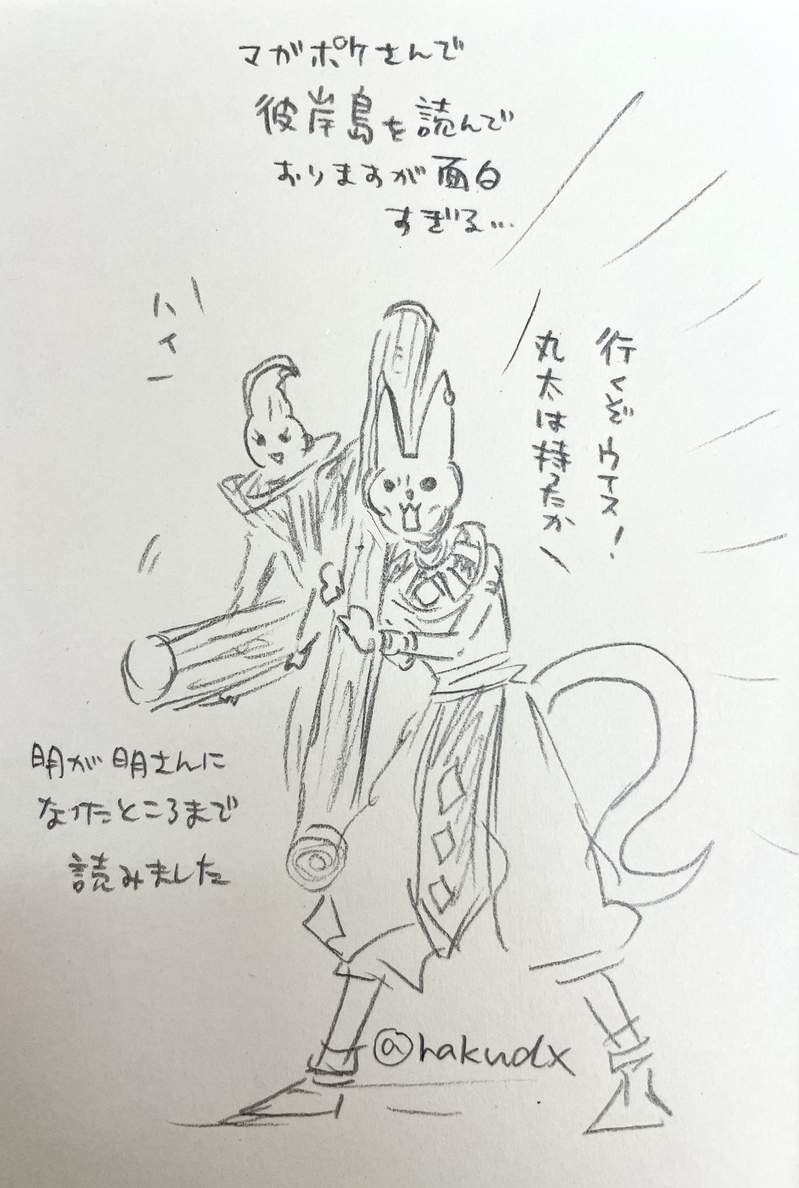 マガポケさんで
彼岸島を読んで
おりますが面白
すぎる…
行くぞウイス!
丸太は持ったか
ハイ
明が明さんに
なったところまで
読みました
@hakudx